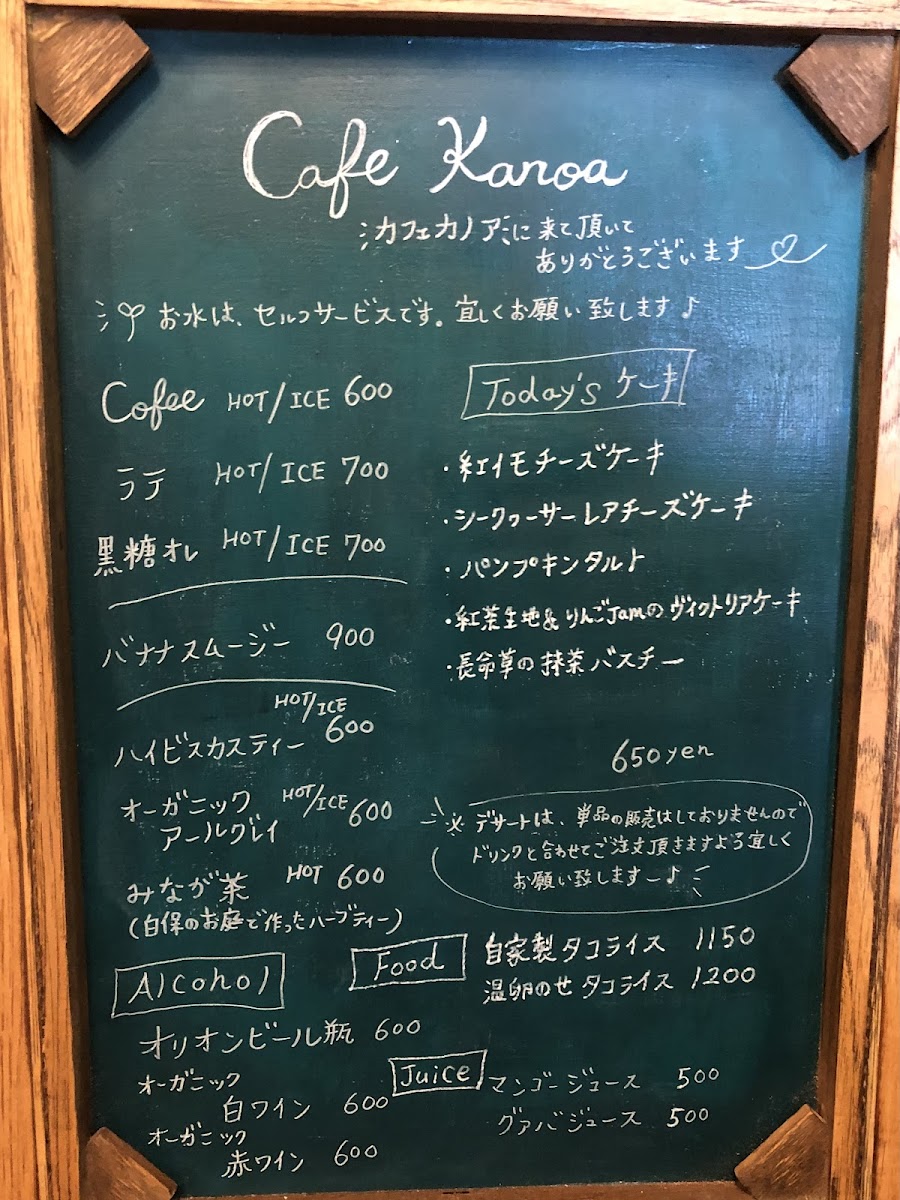 Cafe Kanoa
カフェカノアに来て頂いて
ありがとうございます
お水は、セルフサービスです。宜しくお願い致します♪
Cofee HOT/ICE 600
ラテ HOT/ICE 700
黒糖オレ HOT/ICE 700
バナナスムージー 900
HOT/ICE
ハイビスカスティー 600
オーガニック HOT/ICE
アールグレイ 600
みなが茶 HOT 600
(白保のお庭で作ったハーブティー)
Today's ケーキ
・紅イモチーズケーキ
・シークヮーサーレアチーズケーキ
・パンプキンタルト
・紅茶生地&りんごJamのヴィクトリアケーキ
・長命草の抹茶バスチー
650yen
※デザートは、単品の販売はしておりませんので
ドリンクと合わせてご注文頂きますよう宜しく
お願い致しますー♪
Alcohol
オリオンビール瓶 600
オーガニック
白ワイン 600
オーガニック
赤ワイン 600
Food
自家製タコライス 1150
温卵のせタコライス 1200
Juice
マンゴージュース 500
グァバジュース 500